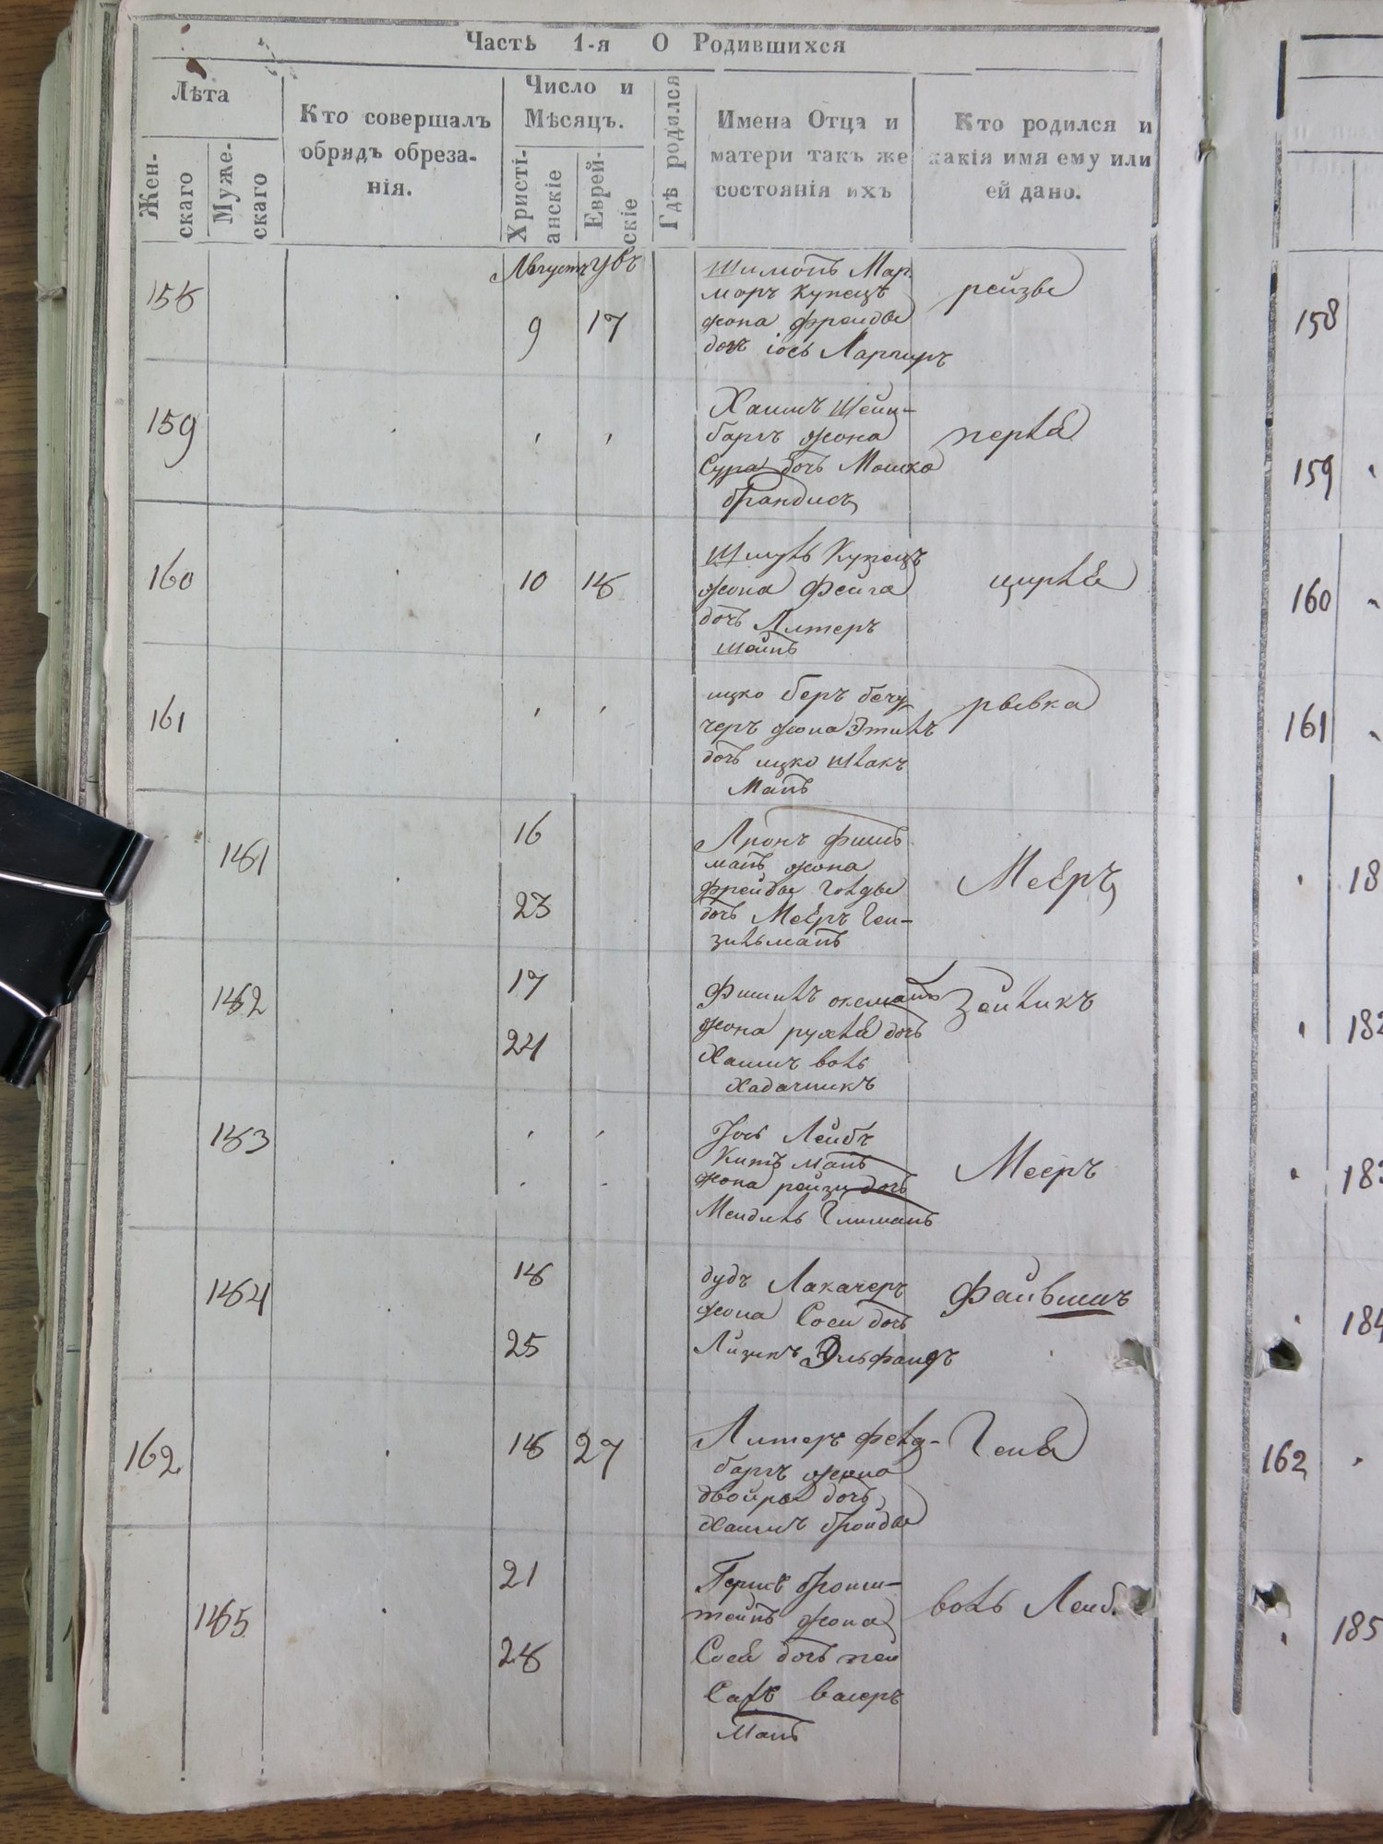 Часть 1-я О Родившихся
Лѣта
Жен-
скаго
Муже-
скаго
Кто совершалъ
обрядъ обреза-
нія.
Число и
Мѣсяцъ.
Христі-
анскіе
Еврей-
скіе
Гдѣ родился
Имена Отца и
матери такъ же
состоянія ихъ
Кто родился и
какія имя ему или
ей дано.
158
Августъ
9
17
Шимонъ Мар
моръ Купецъ
жона фрейда
доч іось
рейза
158
159
Хаимъ Шейн-
баргъ жона
Сура дочь Мошко
брандисъ
перла
159
160
10
18
Шмуль Купецъ
жона Фейга
дочь Алтеръ
Майнъ
цирла
160
161
ицко беръ бечу
черъ жона Этилъ
дочь ицко шлакъ
Манъ
рывка
161
181
16
23
Аронъ фиш
манъ жона
фрейда голда
дочь Меёръ Ген-
зильманъ
Меёръ
18
182
17
24
Фишилъ оксманъ
жона рухля дочь
Хаимъ воль
Хадачникъ
Зейликъ
182
183
Іось Лейбъ
Китъ манъ
жона рейзи дочь
Мендиль Глиманъ
Мееръ
183
184
18
25
дудъ Лакачеръ
жона Соси дочь
Айзикъ Эльфандъ
Файвишъ
184
162
18
27
Алтеръ фелд-
баргъ жона
двойра дочь
Хаимъ бройда
Геня
162
185
21
28
Гершъ бронш-
тейнъ жона
Сося дочь пей
Сахъ васеръ
Манъ
воль Лейб.
185